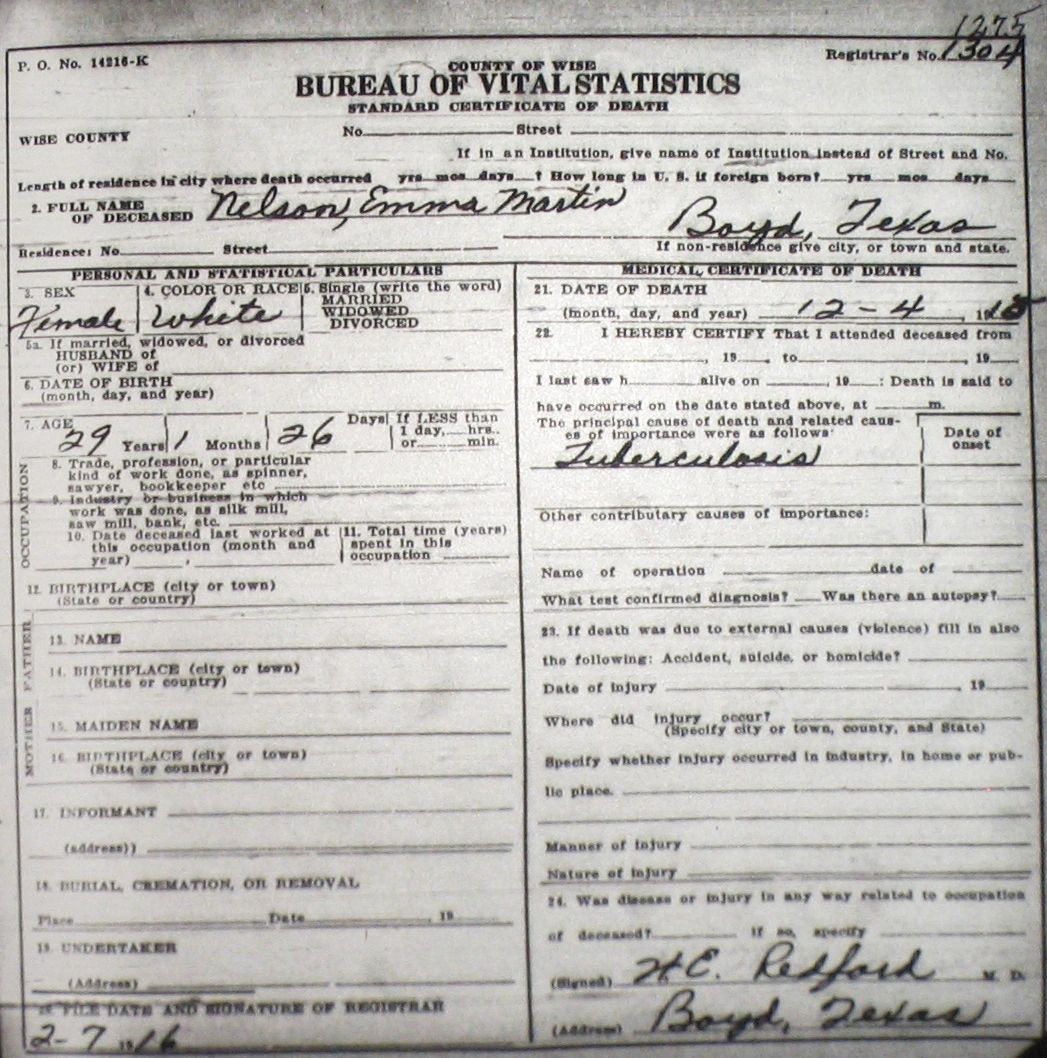 1275
P. O. No. 14216-K
Registrar's No. 1304
COUNTY OF WISE
BUREAU OF VITAL STATISTICS
STANDARD CERTIFICATE OF DEATH
WISE COUNTY
No. Street
If in an Institution, give name of Institution instead of Street and No.
Length of residence in city where death occurred yrs mos days ? How long in U. S. if foreign born? yrs. mos. days
2. FULL NAME OF DECEASED Nelson, Emma Martin
Boyd, Texas
Residence: No. Street
If non-residence give city, or town and state.
PERSONAL AND STATISTICAL PARTICULARS
3. SEX
Female
4. COLOR OR RACE
White
5. Single (write the word)
MARRIED
WIDOWED
DIVORCED
5a. If married, widowed, or divorced
HUSBAND of
(or) WIFE of
6. DATE OF BIRTH
(month, day, and year)
7. AGE
29 Years 1 Months 26 Days
If LESS than
1 day, hrs.
or min.
OCCUPATION
8. Trade, profession, or particular
kind of work done, as spinner,
sawyer, bookkeeper etc
9. Industry or business in which
work was done, as silk mill,
saw mill, bank, etc.
10. Date deceased last worked at
this occupation (month and
year) ,
11. Total time (years)
spent in this
occupation
12. BIRTHPLACE (city or town)
(State or country)
FATHER
13. NAME
14. BIRTHPLACE (city or town)
(State or country)
MOTHER
15. MAIDEN NAME
16. BIRTHPLACE (city or town)
(State or country)
17. INFORMANT
(address))
18. BURIAL, CREMATION, OR REMOVAL
Place Date , 19
19. UNDERTAKER
(Address)
FILE DATE AND SIGNATURE OF REGISTRAR
2-7 16
MEDICAL CERTIFICATE OF DEATH
21. DATE OF DEATH
(month, day, and year) 12-4
22. I HEREBY CERTIFY That I attended deceased from
, 19 , to , 19
I last saw h alive on , 19 : Death is said to
have occurred on the date stated above, at m.
The principal cause of death and related caus-
es of importance were as follows:
Date of
onset
Tuberculosis
Other contributary causes of importance:
Name of operation date of
What test confirmed diagnosis? Was there an autopsy?
23. If death was due to external causes (violence) fill in also
the following: Accident, suicide, or homicide?
Date of injury , 19
Where did injury occur?
(Specify city or town, county, and State)
Specify whether injury occurred in industry, in home or pub-
lic place.
Manner of injury
Nature of injury
24. Was disease or injury in any way related to occupation
of deceased? If so, specify
(Signed) H.E. Redford M. D.
(Address) Boyd, Texas